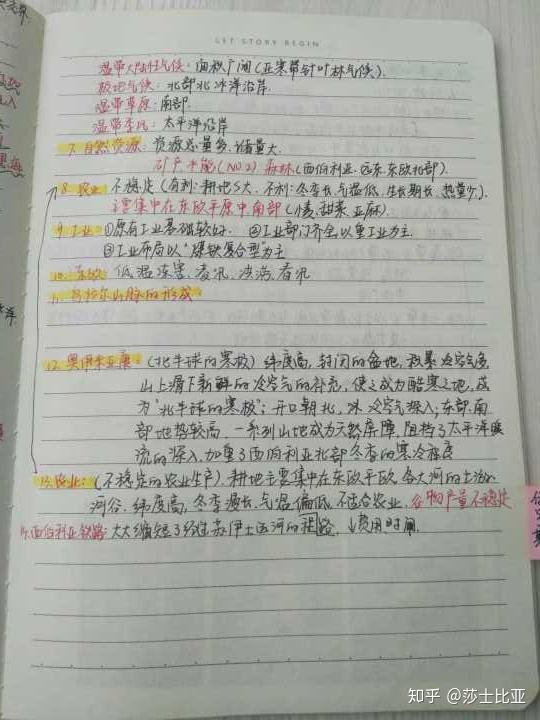 LET STORY BEGIN
温带大陆性气候：面积广阔（亚寒带针叶林气候）．
极地气候：北部北冰洋沿岸．
温带草原：南部
温带季风：太平洋沿岸
7. 自然资源：资源总量多、储量大．
矿产水能（NO2）森林（西伯利亚．远东．东欧北部）．
8. 农业 不稳定（有利：耕地S大．不利：冬季长，气温低，生长期长．热量少）．
主要集中在东欧平原中南部（小麦．甜菜．亚麻）．
9. 工业 ①原有工业基础较好． ②工业部门齐全，以重工业为主．
③工业布局以“爆铁复合型”为主
10. 低温冻害．春汛．凌汛．春汛
11. 乌拉尔山脉的形成
12. 奥伊米亚康 （北半球的寒极）纬度高，封闭的盆地，致暴冷空气多，
山上滑下新鲜的冷空气的补充，使之成为酷寒之地，成
为“北半球的寒极”；开口朝北，冰冷空气深入；东部．南
部地势较高，一系列山地成为天然屏障，阻挡了太平洋暖
流的深入，加重了西伯利亚北部冬季的寒冷程度
13. 农业：（不稳定的农业生产）．耕地主要集中在东欧平原，各大河的上游
河谷．纬度高，冬季漫长，气温偏低，不适合农业．谷物产量不稳定
14. 西伯利亚铁路：大大缩短了绕经苏伊士运河的程路，↓费用时间．
知乎 @莎士比亚